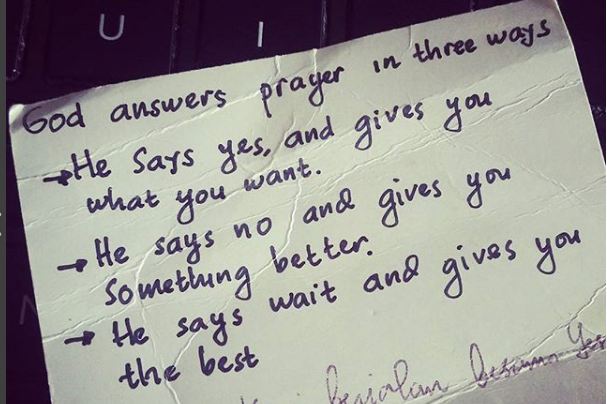 U I
God answers prayer in three ways
→ He Says yes, and gives you
what you want.
→ He says no and gives you
Something better.
→ He says wait and gives you
the best
berjalan bersama Yes